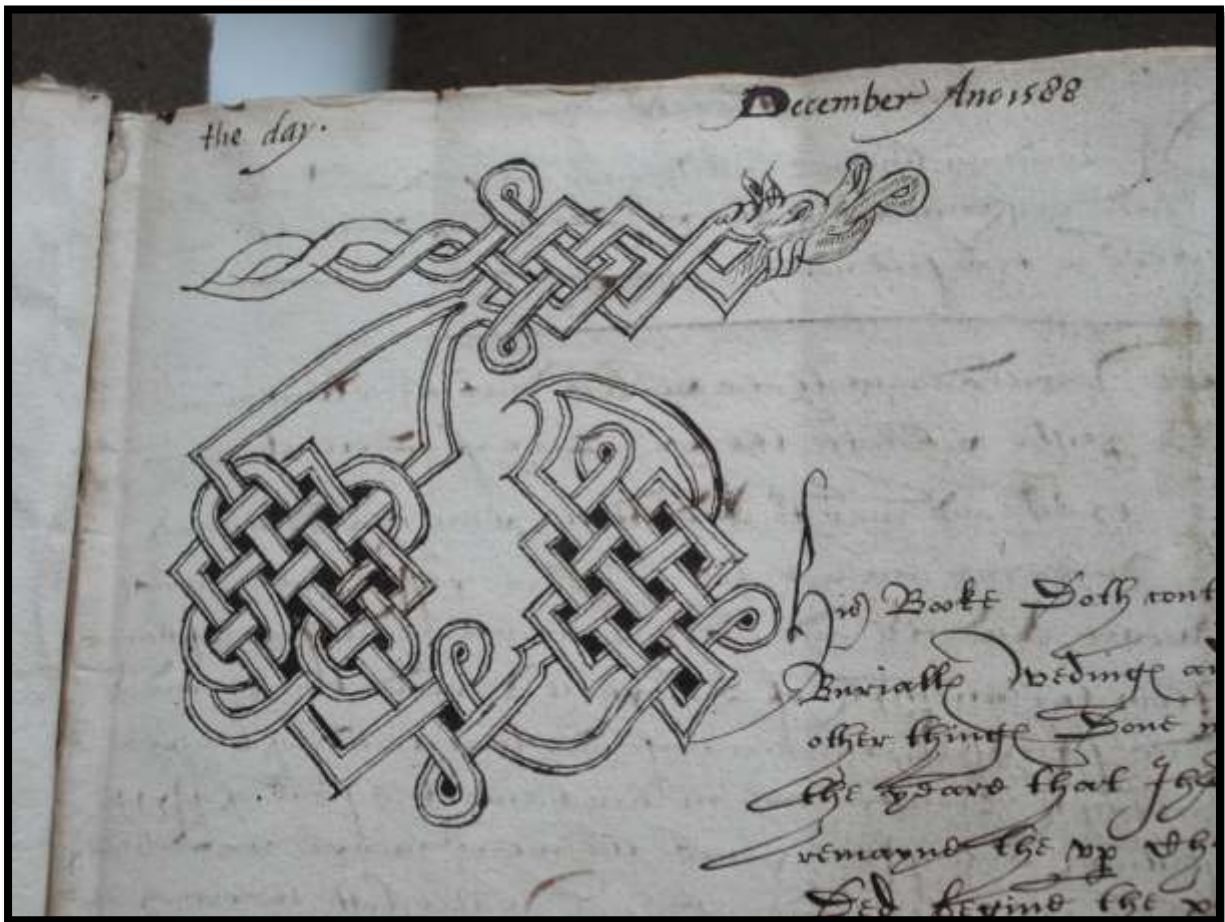 the day.
December Ano 1588
This Booke Doth cont
Buriall wedinge a
other thinge Done
the yeare that
remayne the
Ded begine the